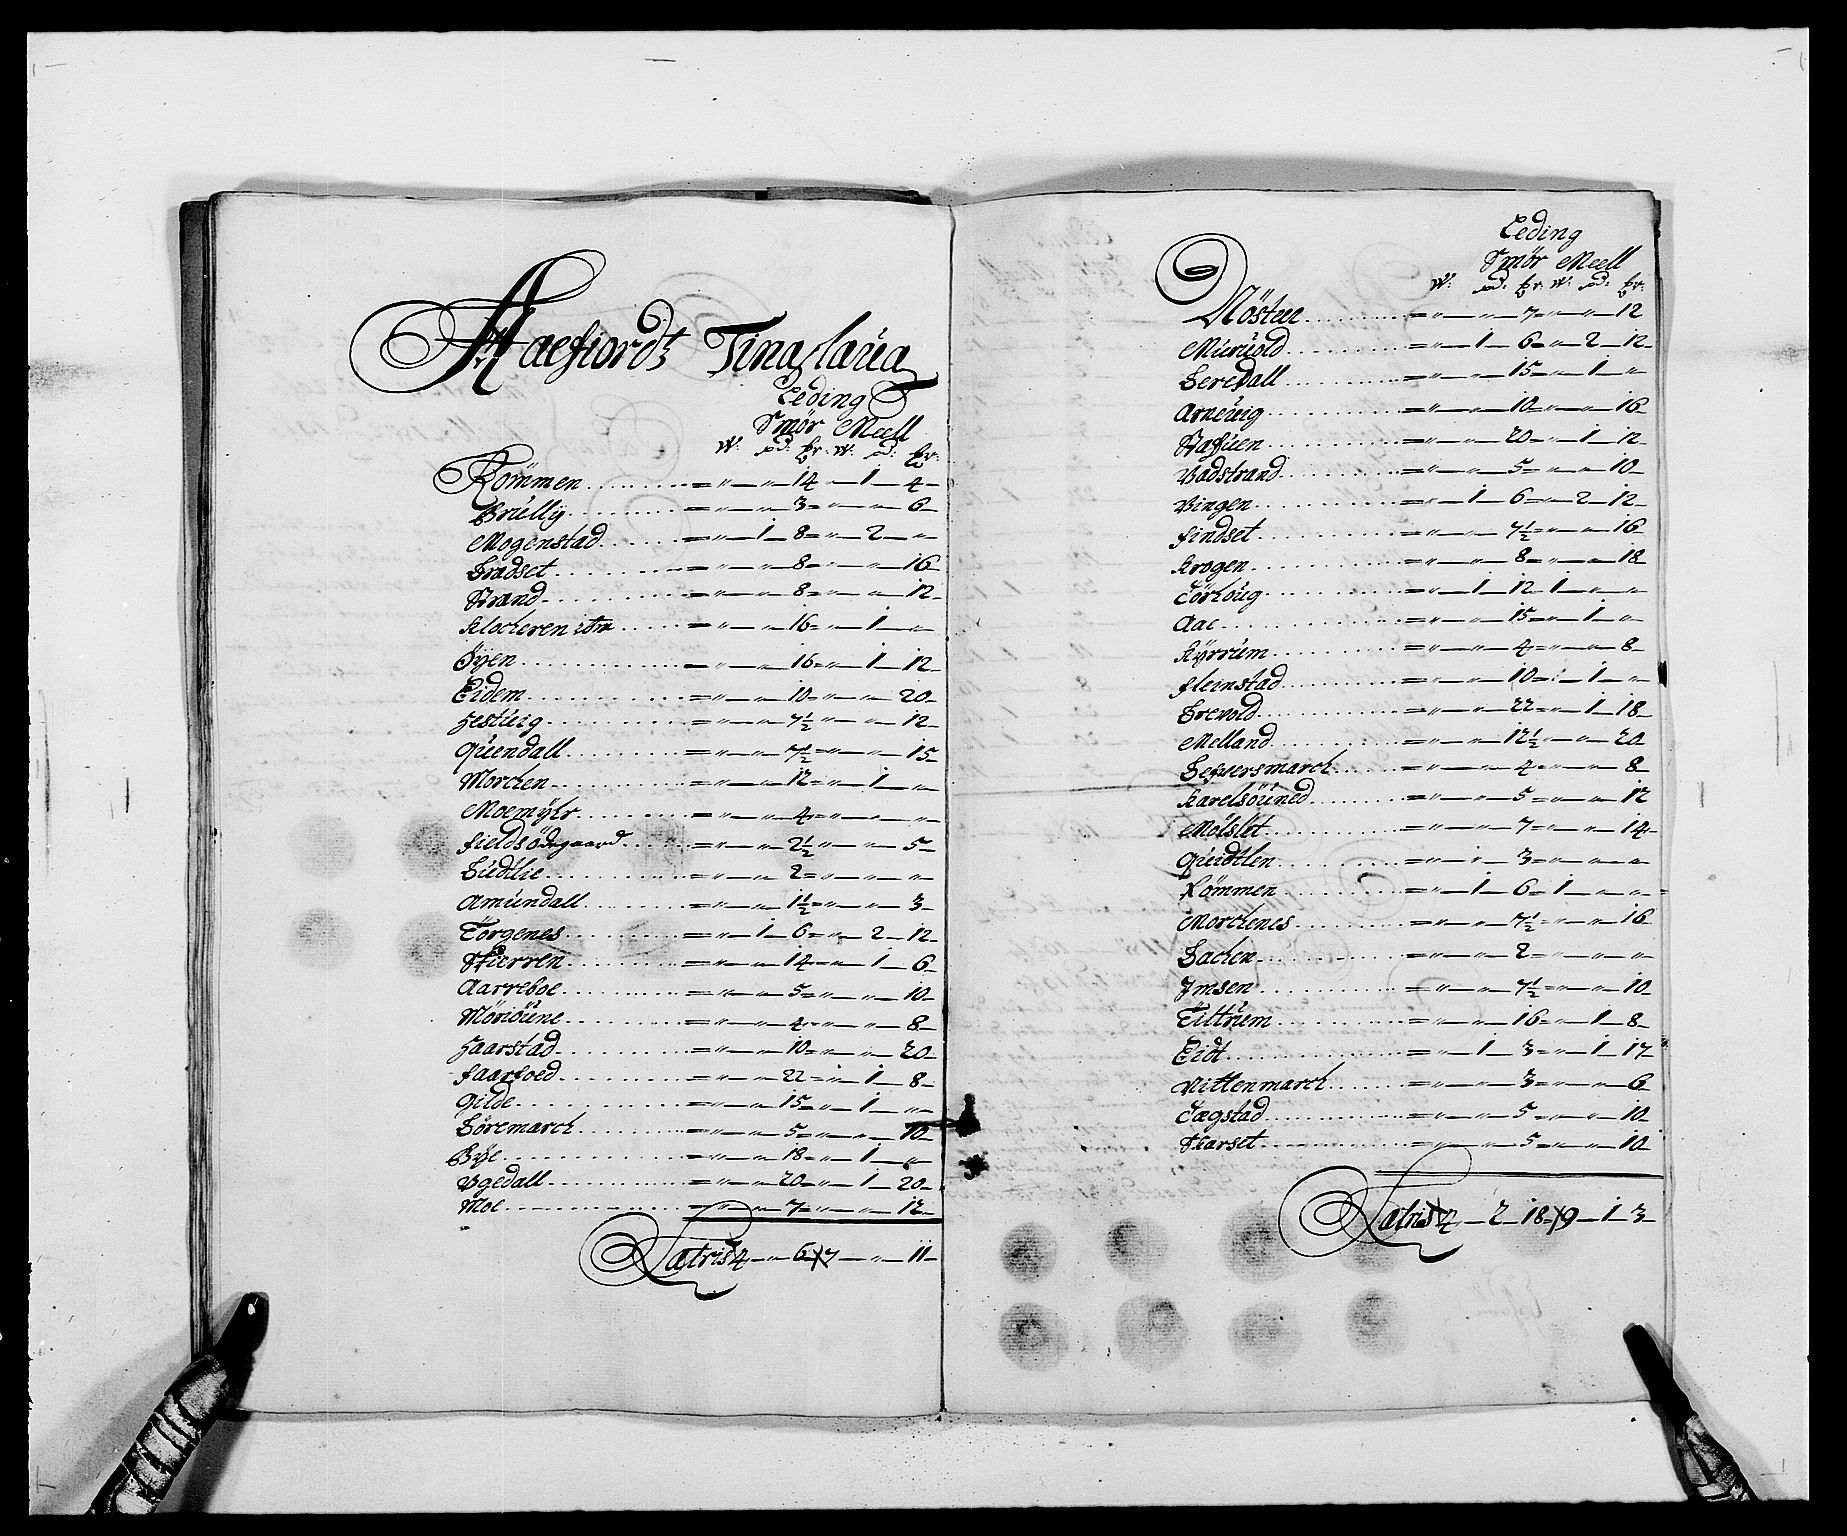 Aaefiordt Tinglaug
Leding
Smör Meell
W: pd: W: pd:
Rommen = „ — „ — 14 - „ — 1 — 4 -
Brüllÿ = „ — „ — 3 = „ — „ — 6 -
Mogenstad = „ — 1 — 8 = „ — 2 — „
Bradset = „ — „ — 8 = „ — „ — 16 -
Strand = „ — „ — 8 = „ — „ — 12 -
Klocheren = „ — „ — 16 = „ — 1 — „
Öÿen = „ — „ — 16 = „ — 1 — 12 -
Eidem = „ — „ — 10 = „ — „ — 20 -
Hestuig = „ — „ — 7½ = „ — „ — 12 -
Qüendall = „ — „ — 7½ = „ — „ — 15 -
Morchen = „ — „ — 12 = „ — 1 — „
Moemÿhr = „ — „ — 4 = „ — „ — „
Fieldsödegaard = „ — „ — 2½ = „ — „ — 5 -
Lüdtlie = „ — „ — 2 = „ — „ — „
Amündall = „ — „ — 1½ = „ — „ — 3 -
Törgenes = „ — 1 — 6 = „ — 2 — 12 -
Stierren = „ — „ — 14 = „ — 1 — 6 -
Aarreboe = „ — „ — 5 = „ — „ — 10 -
Möriöüne = „ — „ — 4 = „ — „ — 8 -
Haarstad = „ — „ — 10 = „ — „ — 20 -
Faarfoed = „ — „ — 22 = „ — 1 — 8 -
Gilde = „ — „ — 15 = „ — 1 — „
Söremarch = „ — „ — 5 = „ — „ — 10 -
Bÿe = „ — „ — 18 = „ — 1 — „
Ugedall = „ — „ — 20 = „ — 1 — 20 -
Moe = „ — „ — 7 = „ — „ — 12 -
Latris 4 — „ — 6 7 — „ — 11 -
Leding
Smör Meell
W: pd: W: pd:
Nösten = „ — „ — 7 = „ — „ — 12
Müruold = „ — 1 — 6 = „ — 2 — 12 -
Beredall = „ — „ — 15 = „ — 1 — „
Arneuig = „ — „ — 10 = „ — „ — 16 -
Stafüen = „ — „ — 20 = „ — 1 — 12 -
Vadstrand = „ — „ — 5 = „ — „ — 10 -
Vingen = „ — 1 — 6 = „ — 2 — 12 -
Findset = „ — „ — 7½ = „ — „ — 16 -
Krogen = „ — „ — 8 = „ — „ — 18 -
Törhöug = „ — 1 — 12 - 1 — „ — „
Aae = „ — „ — 15 = „ — 1 — „
Kÿrrüm = „ — „ — 4 = „ — „ — 8 -
Fleinstad = „ — „ — 10 = „ — 1 — „
Brevold = „ — „ — 22 = „ — 1 — 18 -
Melland = „ — „ — 12½ - „ — „ — 20 -
= „ — „ — 4 - „ — „ — 8 -
Karelsöüned = „ — „ — 5 = „ — „ — 12
Mölslet = „ — „ — 7 = „ — „ — 14 -
Qüidtlen = „ — „ — 3 = „ — „ — „
Römmen = „ — 1 — 6 = 1 — „ — „
Morchenes = „ — „ — 7½ = „ — „ — 16 -
Bachen = „ — „ — 2 = „ — „ — „
Imsen = „ — „ — 7½ = „ — „ — 10 -
Tiltrüm = „ — „ — 16 = „ — 1 — 8 -
Eidt = „ — 1 — 3 = „ — 1 — 17 -
Nittenmarch = „ — „ — 3 = „ — „ — 6 -
Tægstad = „ — „ — 5 = „ — „ — 10 -
Skarset = „ — „ — 5 = „ — „ — 10 -
Latris 4 — 2 — 18 - 9 — 1 — 3 -